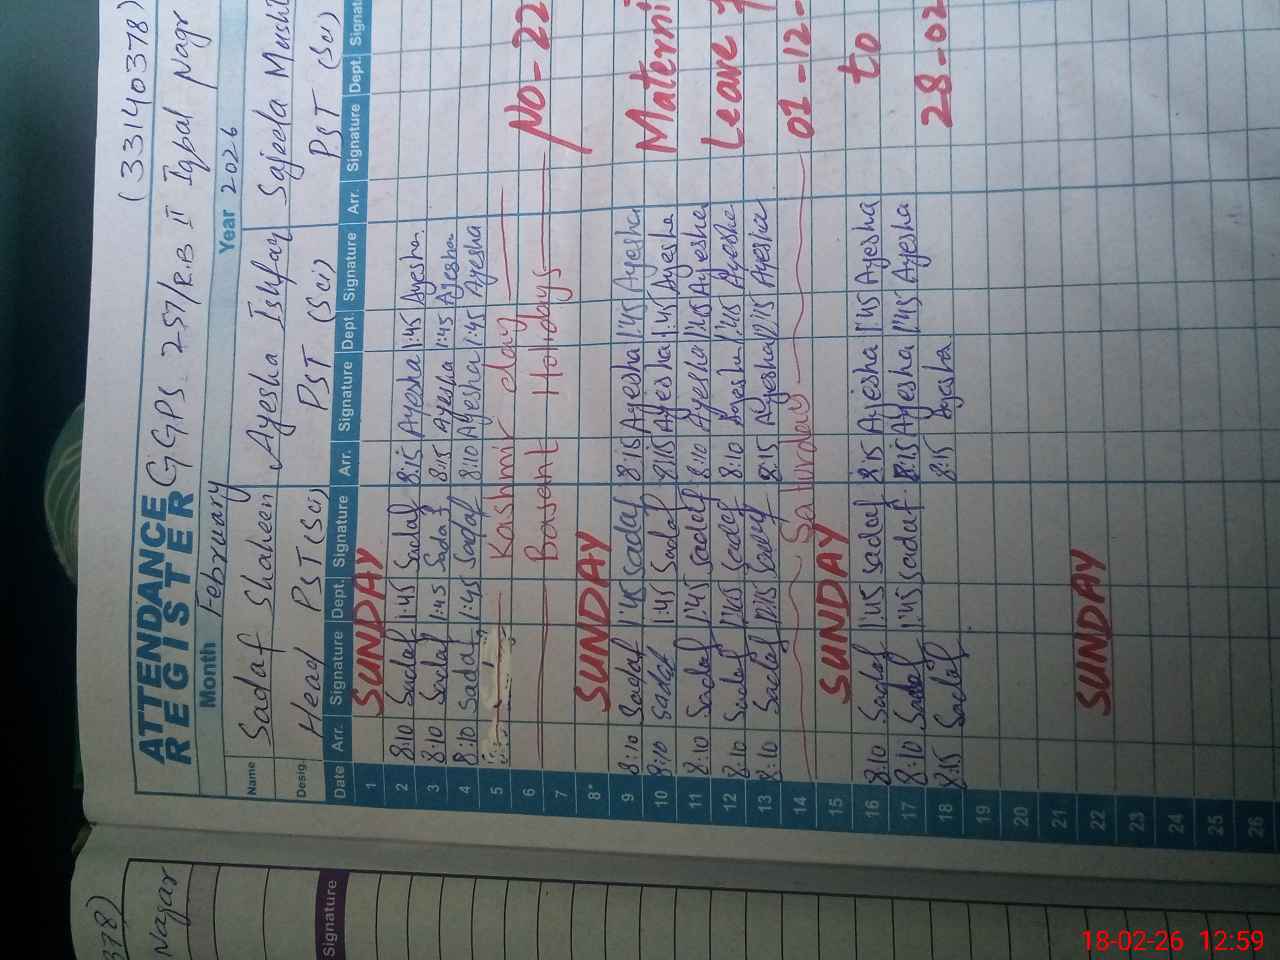 (33140378)
ATTENDANCE REGISTER GGPS 257/R.B II Iqbal Nagr
Month February Year 2026
Name Sadaf Shaheen Ayesha Ishfaq Sajeela
Desig. Head PST (Sci) PST (Sci) PST (Sci)
Date Arr. Signature Dept. Signature Arr. Signature Dept. Signature Arr. Signature Dept.
1 SUNDAY
2 8:10 Sadaf 1:45 Sadaf 8:15 Ayesha 1:45 Ayesha
3 8:10 Sadaf 1:45 Sadaf 8:15 Ayesha 1:45 Ayesha
4 8:10 Sadaf 1:45 Sadaf 8:10 Ayesha 1:45 Ayesha
5 Kashmir day
6 Basant Holidays No-22
7
8 SUNDAY
9 8:10 Sadaf 1:45 Sadaf 8:15 Ayesha 1:45 Ayesha
10 8:10 Sadaf 1:45 Sadaf 8:15 Ayesha 1:45 Ayesha
11 8:10 Sadaf 1:45 Sadaf 8:10 Ayesha 1:45 Ayesha
12 8:10 Sadaf 1:45 Sadaf 8:10 Ayesha 1:45 Ayesha
13 8:10 Sadaf 12:15 Sadaf 8:15 Ayesha 12:15 Ayesha
14 Saturday 01-12-
15 SUNDAY
16 8:10 Sadaf 1:45 Sadaf 8:15 Ayesha 1:45 Ayesha to
17 8:10 Sadaf 1:45 Sadaf 8:15 Ayesha 1:45 Ayesha
18 8:15 Sadaf 8:15 Ayesha 28-02
19
20
21
22 SUNDAY
23
24
25
26
Leave
378)
Nagar
Signature
18-02-26 12:59